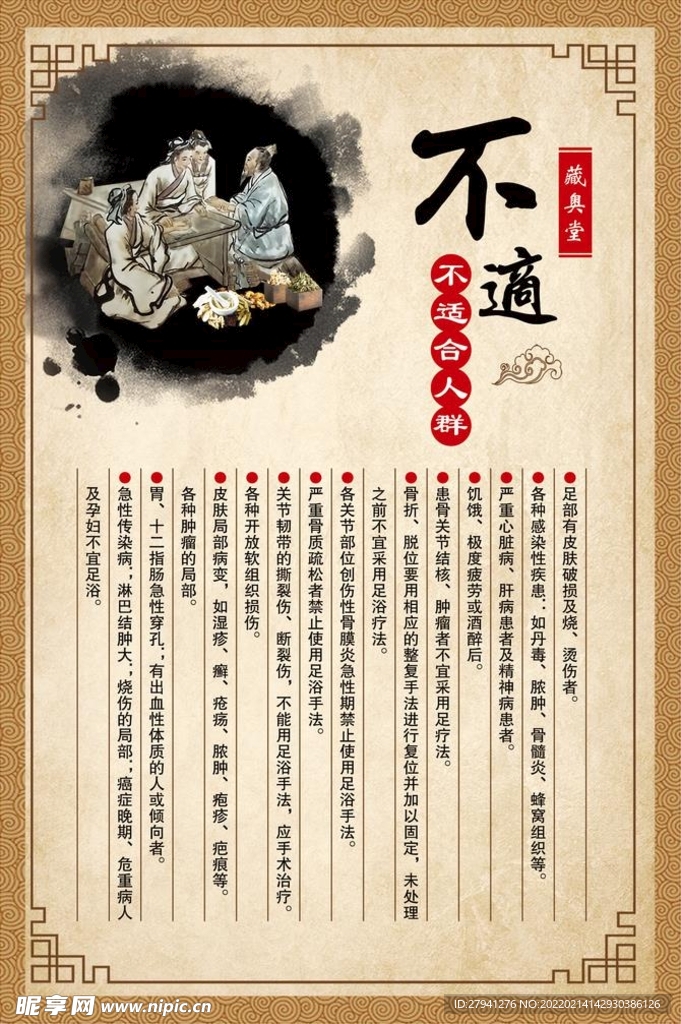 藏奥堂
不適
不适合人群
足部有皮肤破损及烧、烫伤者。
各种感染性疾患：如丹毒、脓肿、骨髓炎、蜂窝组织等。
严重心脏病、肝病患者及精神病患者。
饥饿、极度疲劳或酒醉后。
患骨关节结核、肿瘤者不宜采用足疗法。
骨折、脱位要用相应的整复手法进行复位并加以固定，未处理
之前不宜采用足浴疗法。
各关节部位创伤性骨膜炎急性期禁止使用足浴手法。
严重骨质疏松者禁止使用足浴手法。
关节韧带的撕裂伤、断裂伤，不能用足浴手法，应手术治疗。
各种开放软组织损伤。
皮肤局部病变，如湿疹、癣、疮疡、脓肿、疱疹、疤痕等。
各种肿瘤的局部。
胃、十二指肠急性穿孔；有出血性体质的人或倾向者。
急性传染病；淋巴结肿大；烧伤的局部；癌症晚期、危重病人
及孕妇不宜足浴。
昵享网 www.nipic.cn
ID:27941276 NO:20220214142930386126